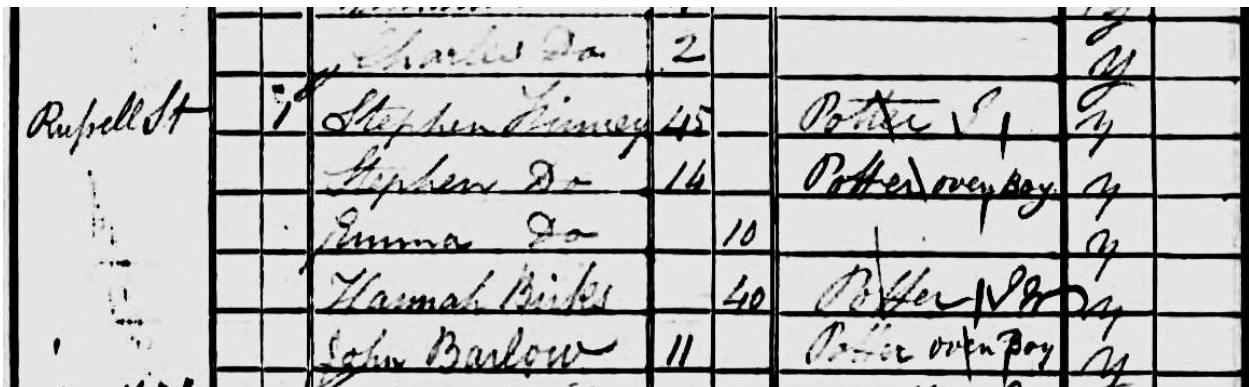 Charles Do 2 y
Russell St 1 Stephen Finney 45 Potter J y
Stephen Do 14 Potter oven Boy y
Emma Do 10 y
Hannah Birks 40 Potter y
John Barlow 11 Potter oven Boy y